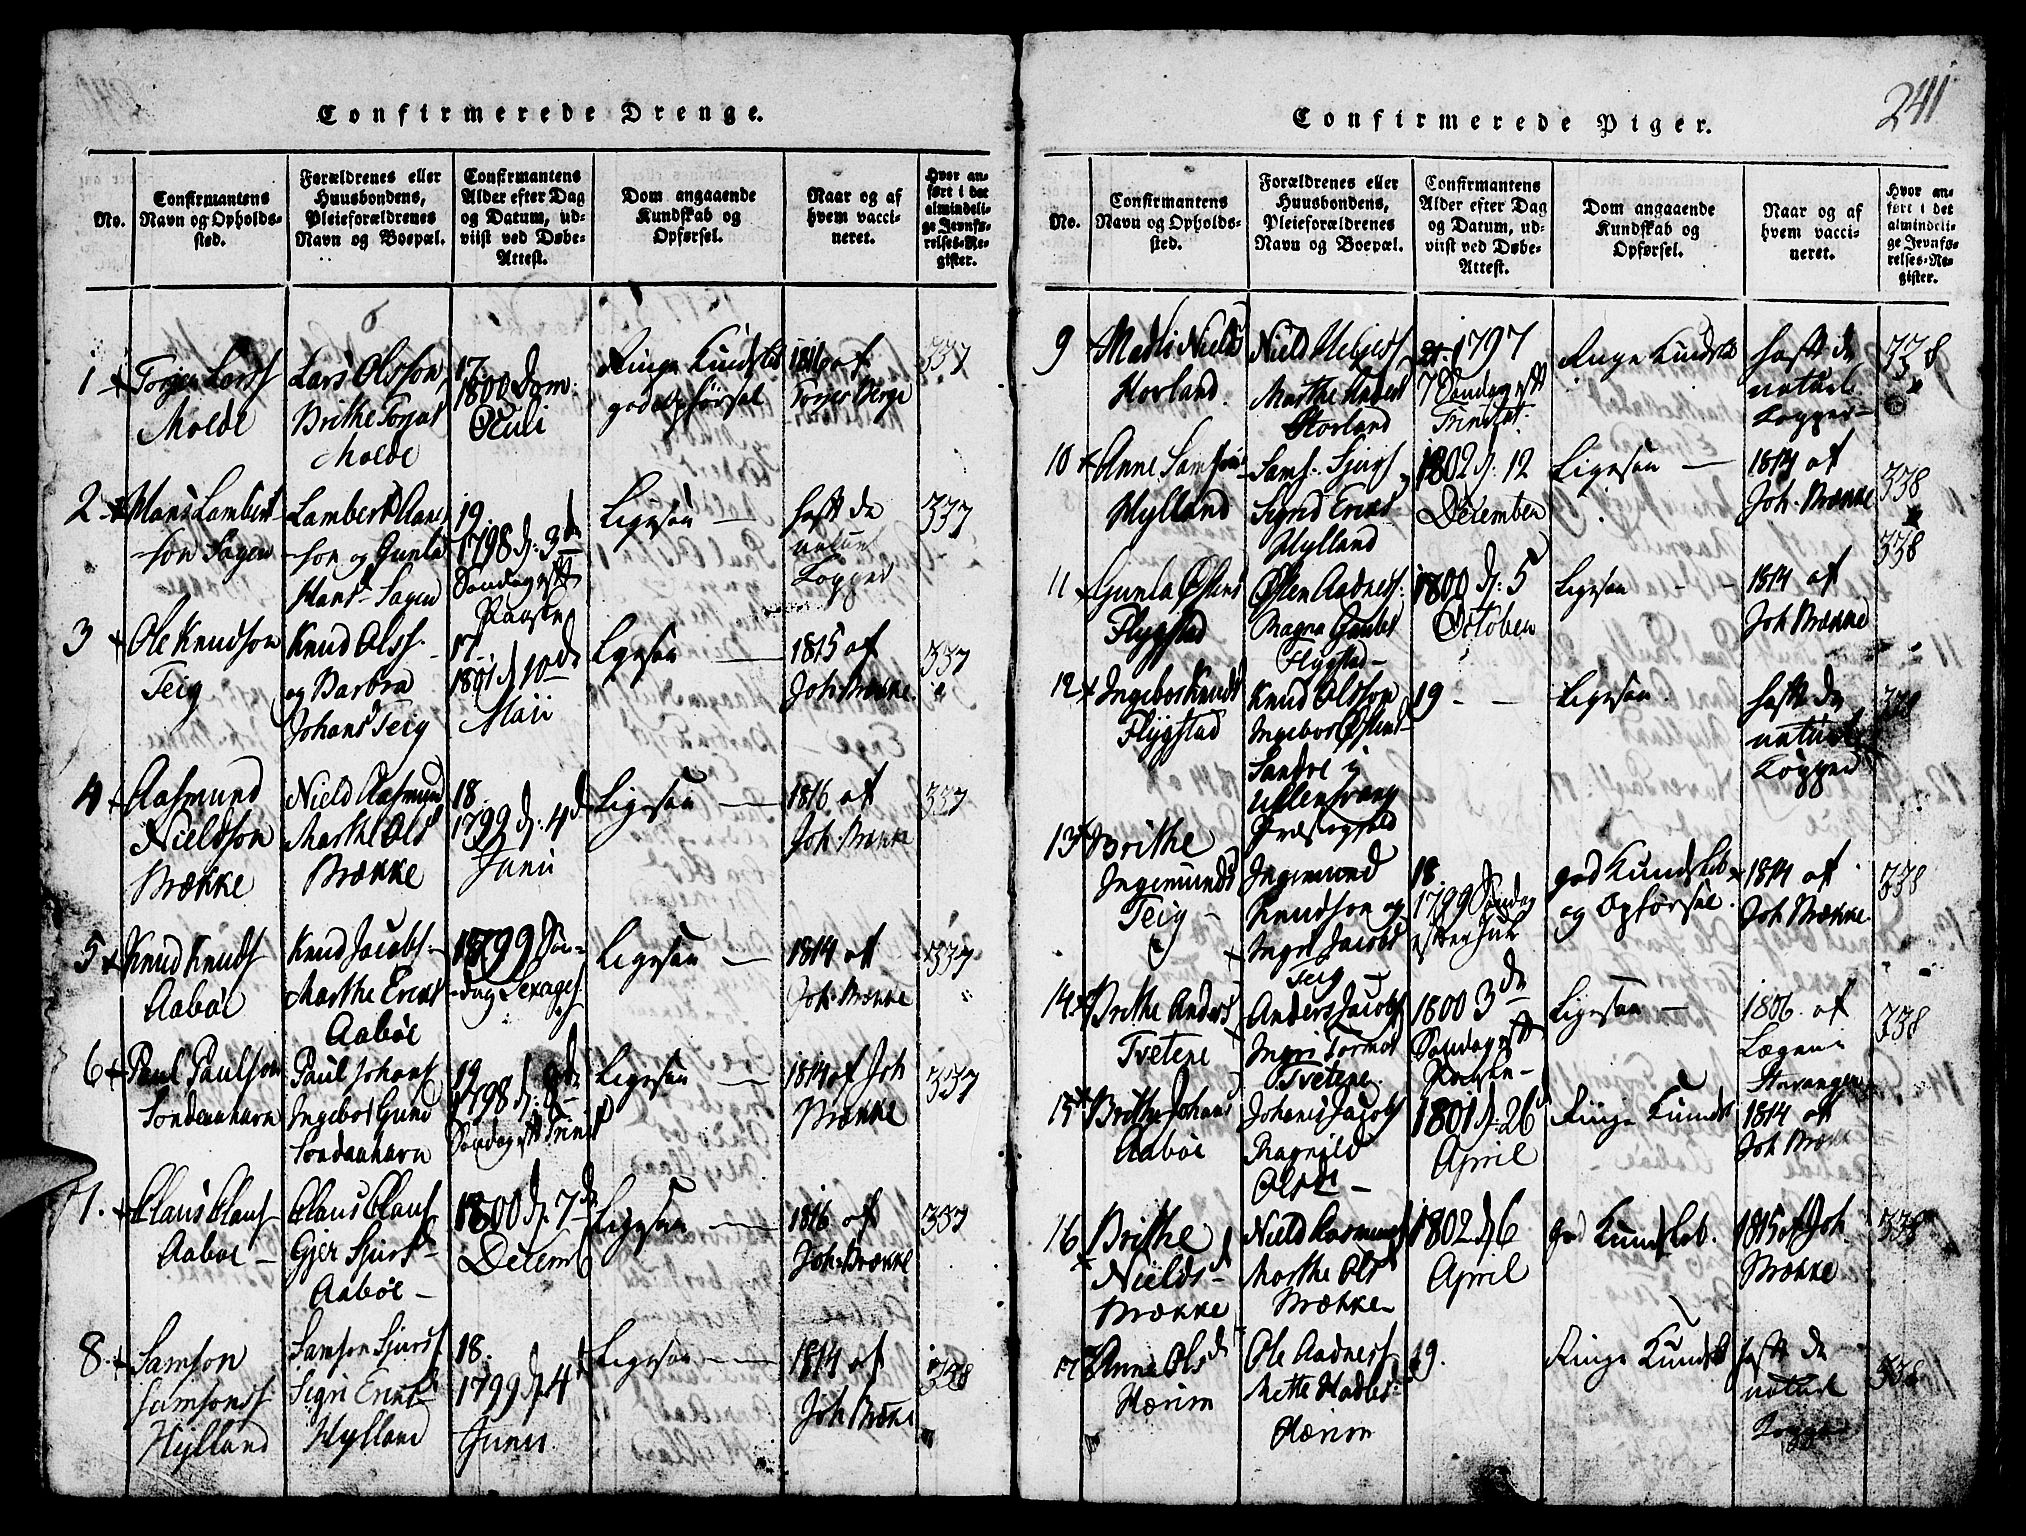 Confirmerede Drenge.
No.
Confirmantens
Navn og Opholds-
sted.
Forældrenes eller
Huusbondens,
Pleieforældrenes
Navn og Boepæl.
Confirmantens
Alder efter Dag
og Datum, ud-
viist ved Døbe-
Attest.
Dom angaaende
Kundskab og
Opførsel.
Naar og af
hvem vacci-
neret.
Hvor an-
ført i det
almindeli-
ge Jevnfø-
relses-Re-
gister.
1
Molde
Lars Olsson
Brithe
Molde
17.
1800 Dom:
Oculi
Ringe Kundskab
god opførsel
1816 af
Torger Berge
337
2
Hans Lambert-
son Sagen
Lambert
-son og Gunla
Hans Sagen
19.
1798 d: 3de
Søndag eftr
Paaske
Ligesaa —
havt de
naturl
Kopper
337
3
Ole Knudson
Teig
Knud Olss.
og Barbra
Johans Teig
17.
1801 d 10de
Maii
Ligesaa —
1815 af
Joh. Brække.
337
4
Aasmund
Nieldson
Brække
Nield Aasmund
Marthe Ols
Brække
18.
1799 d: 4d
Junii
Ligesaa —
1816 af
Joh. Brække
337
5
Knud Knuds
Aabøe
Knud Jacobs
Marthe Ericks
Aabøe
1799 Søn-
-dag Sexages
Ligesaa —
1814 af
Joh. Brække
337
6
Paul Paulson
Sondenhavn
Paul Johans
Ingebor Gund
Sondenhavn
19
1798 d: 8de
Søndag eftr Trinit
Ligesaa —
1814 af Joh
Brække
337
7.
Claus Claus
Aabøe —
Claus Claus
Gjer Sjurs
Aabøe —
1800 d. 7de
Decemb
Ligesaa —
1816 af
Joh. Brække
337
8.
Samson
Samsons
Hylland
Samson Sjurs
Sigri Ericks
Hylland
18.
1799 d 4d
Junii
Ligesaa —
1814 af
Joh Brække
338
Confirmerede Piger.
241
No.
Confirmantens
Navn og Opholds-
sted.
Forældrenes eller
Huusbondens,
Pleieforældrenes
Navn og Boepæl.
Confirmantens
Alder efter Dag
og Datum, ud-
viist ved Døbe-
Attest.
Dom angaaende
Kundskab og
Opførsel.
Naar og af
hvem vacci-
neret.
Hvor an-
ført i det
almindeli-
ge Jevnfø-
relses-Re-
gister.
9
Madli Nields
Horland
Nield Heljes
Marthe
Horland
1797
7 Søndag eftr
Trinitat:
Ringe Kundskab
havt de
naturl.
Kopper —
338
10
Anne Samson
Hylland
Sams. Sjurs
Sigrid Ericks
Hylland
1802 d. 12
December
Ligesaa —
1814 af
Joh. Brække
338
11
Gunla Østens
Flygstad
Østen Aadnes:
Magna
Flygstad —
1800 d: 5
October
Ligesaa - -
1814 af
Joh Brække
338
12
Ingebor Knuds
Flygstad
Knud Olsson
Ingebor Østens
Sandve i
Ullensvang
Præstegield
19 - -
Ligesaa.
havt de
naturl
Kopper
338
13
Brithe
Ingemunds
Teig —
Ingemund
Knudson og
Ingri Jacobs
Teig —
18.
1799 Søndag
efter Jul
god Kundskab
og Opførsel.
1814 af
Joh Brække.
338
14
Brithe Anders
Tvetene
Anders Jacobs
Ingri Tormo
Tvetene.
1800 3de
Søndag eftr
Paaske —
Ligesaa —
1806. af
Lægen i
Stavanger
338
15
Brithe Johans
Aabøe
Johanes Jacobs
Ragnild
Olsd —
1801 d. 26
April
Ringe Kundsk
1814 af
Joh Brække
16
Brithe
Nields
Brække
Nield Aasmund
Marthe Ols
Brække
1802 d 6
April
god Kundskab.
1815 af Joh.
Brække
338
17
Anna Olsd
Hærim
Ole Aadnes
Mette
Hærim
19.
Ringe Kundsk
havt de
naturl
Kopper
338